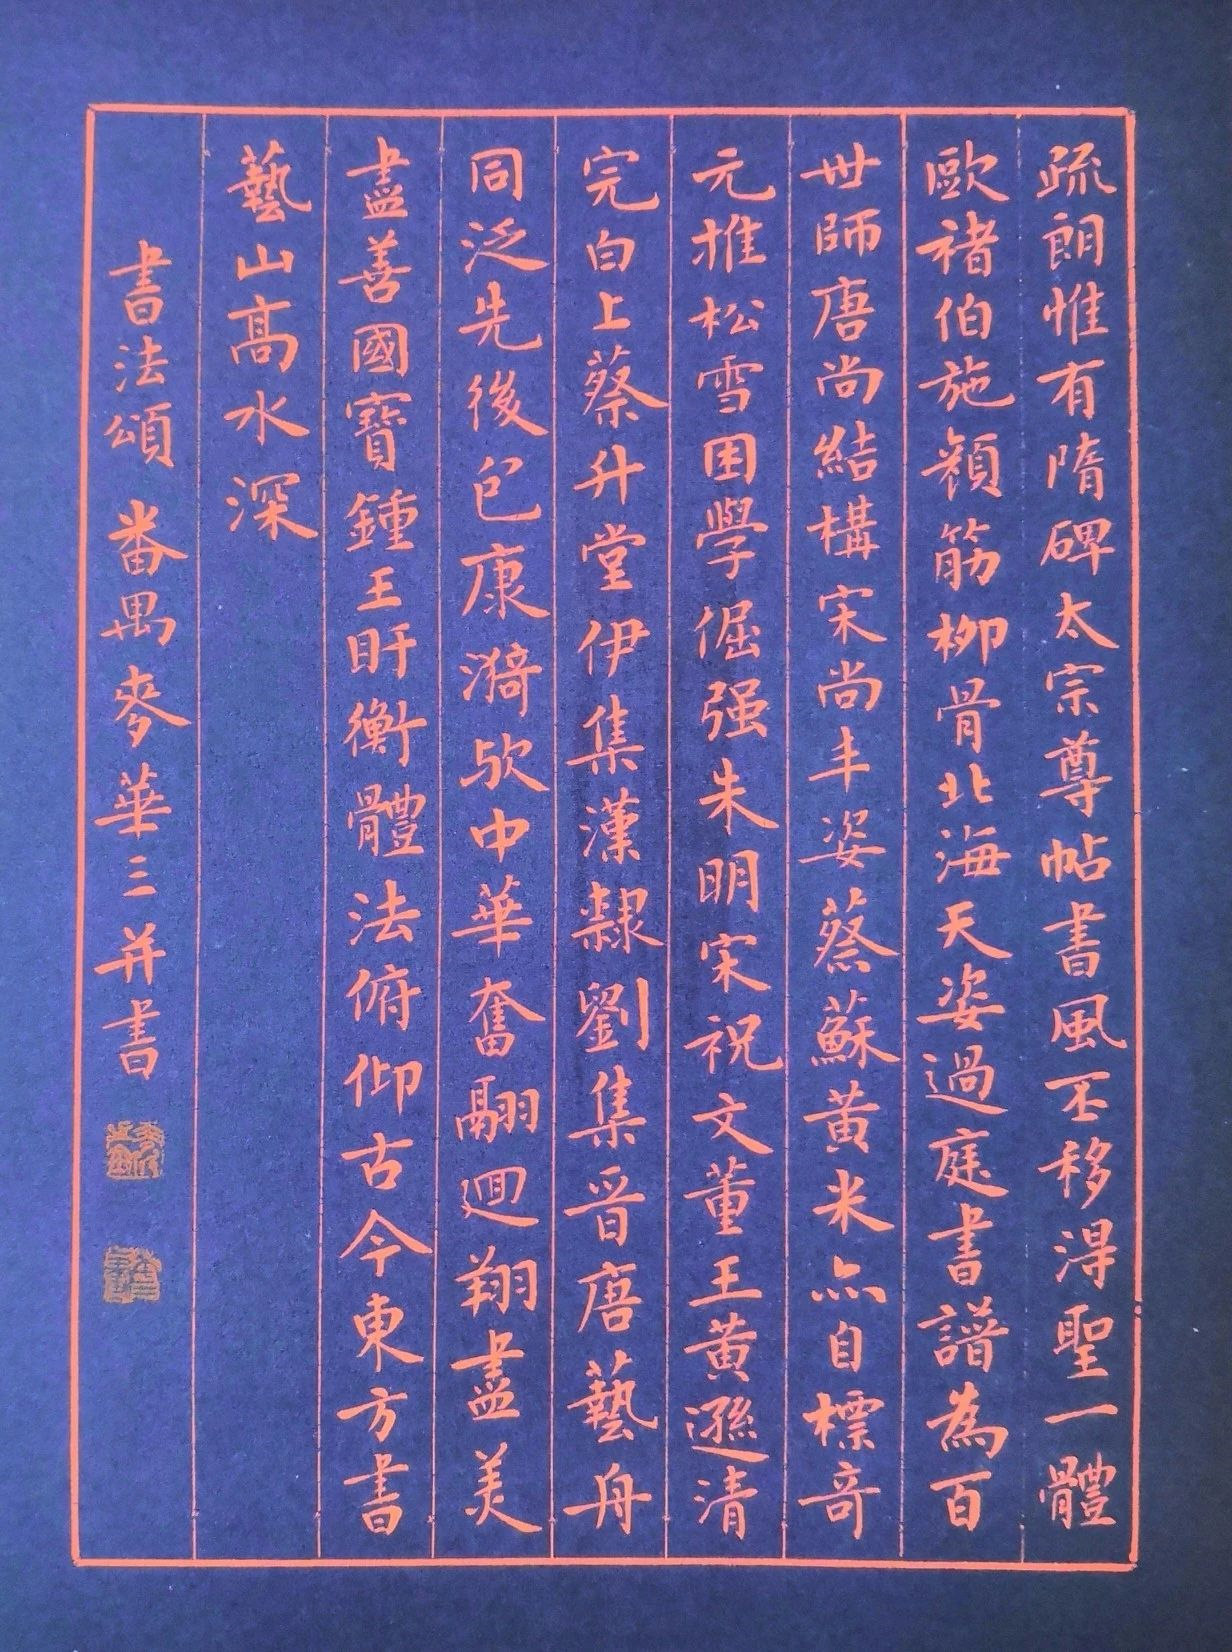 疏朗惟有隋碑太宗尊帖書風丕移淂聖一體
歐褚伯施顏筋柳骨北海天姿過庭書譜為百
世師唐尚結構宋尚丰姿蔡蘇黃米亦自標奇
元推松雪困學倔强朱明宋祝文董王黃遜清
完白上蔡升堂伊集漢隸劉集晉唐藝舟
同泛先後包康漪歟中華奮翮迴翔盡美
盡善國寶鍾王盱衡體法俯仰古今東方書
藝山高水深
書法頌 番禺麥華三并書